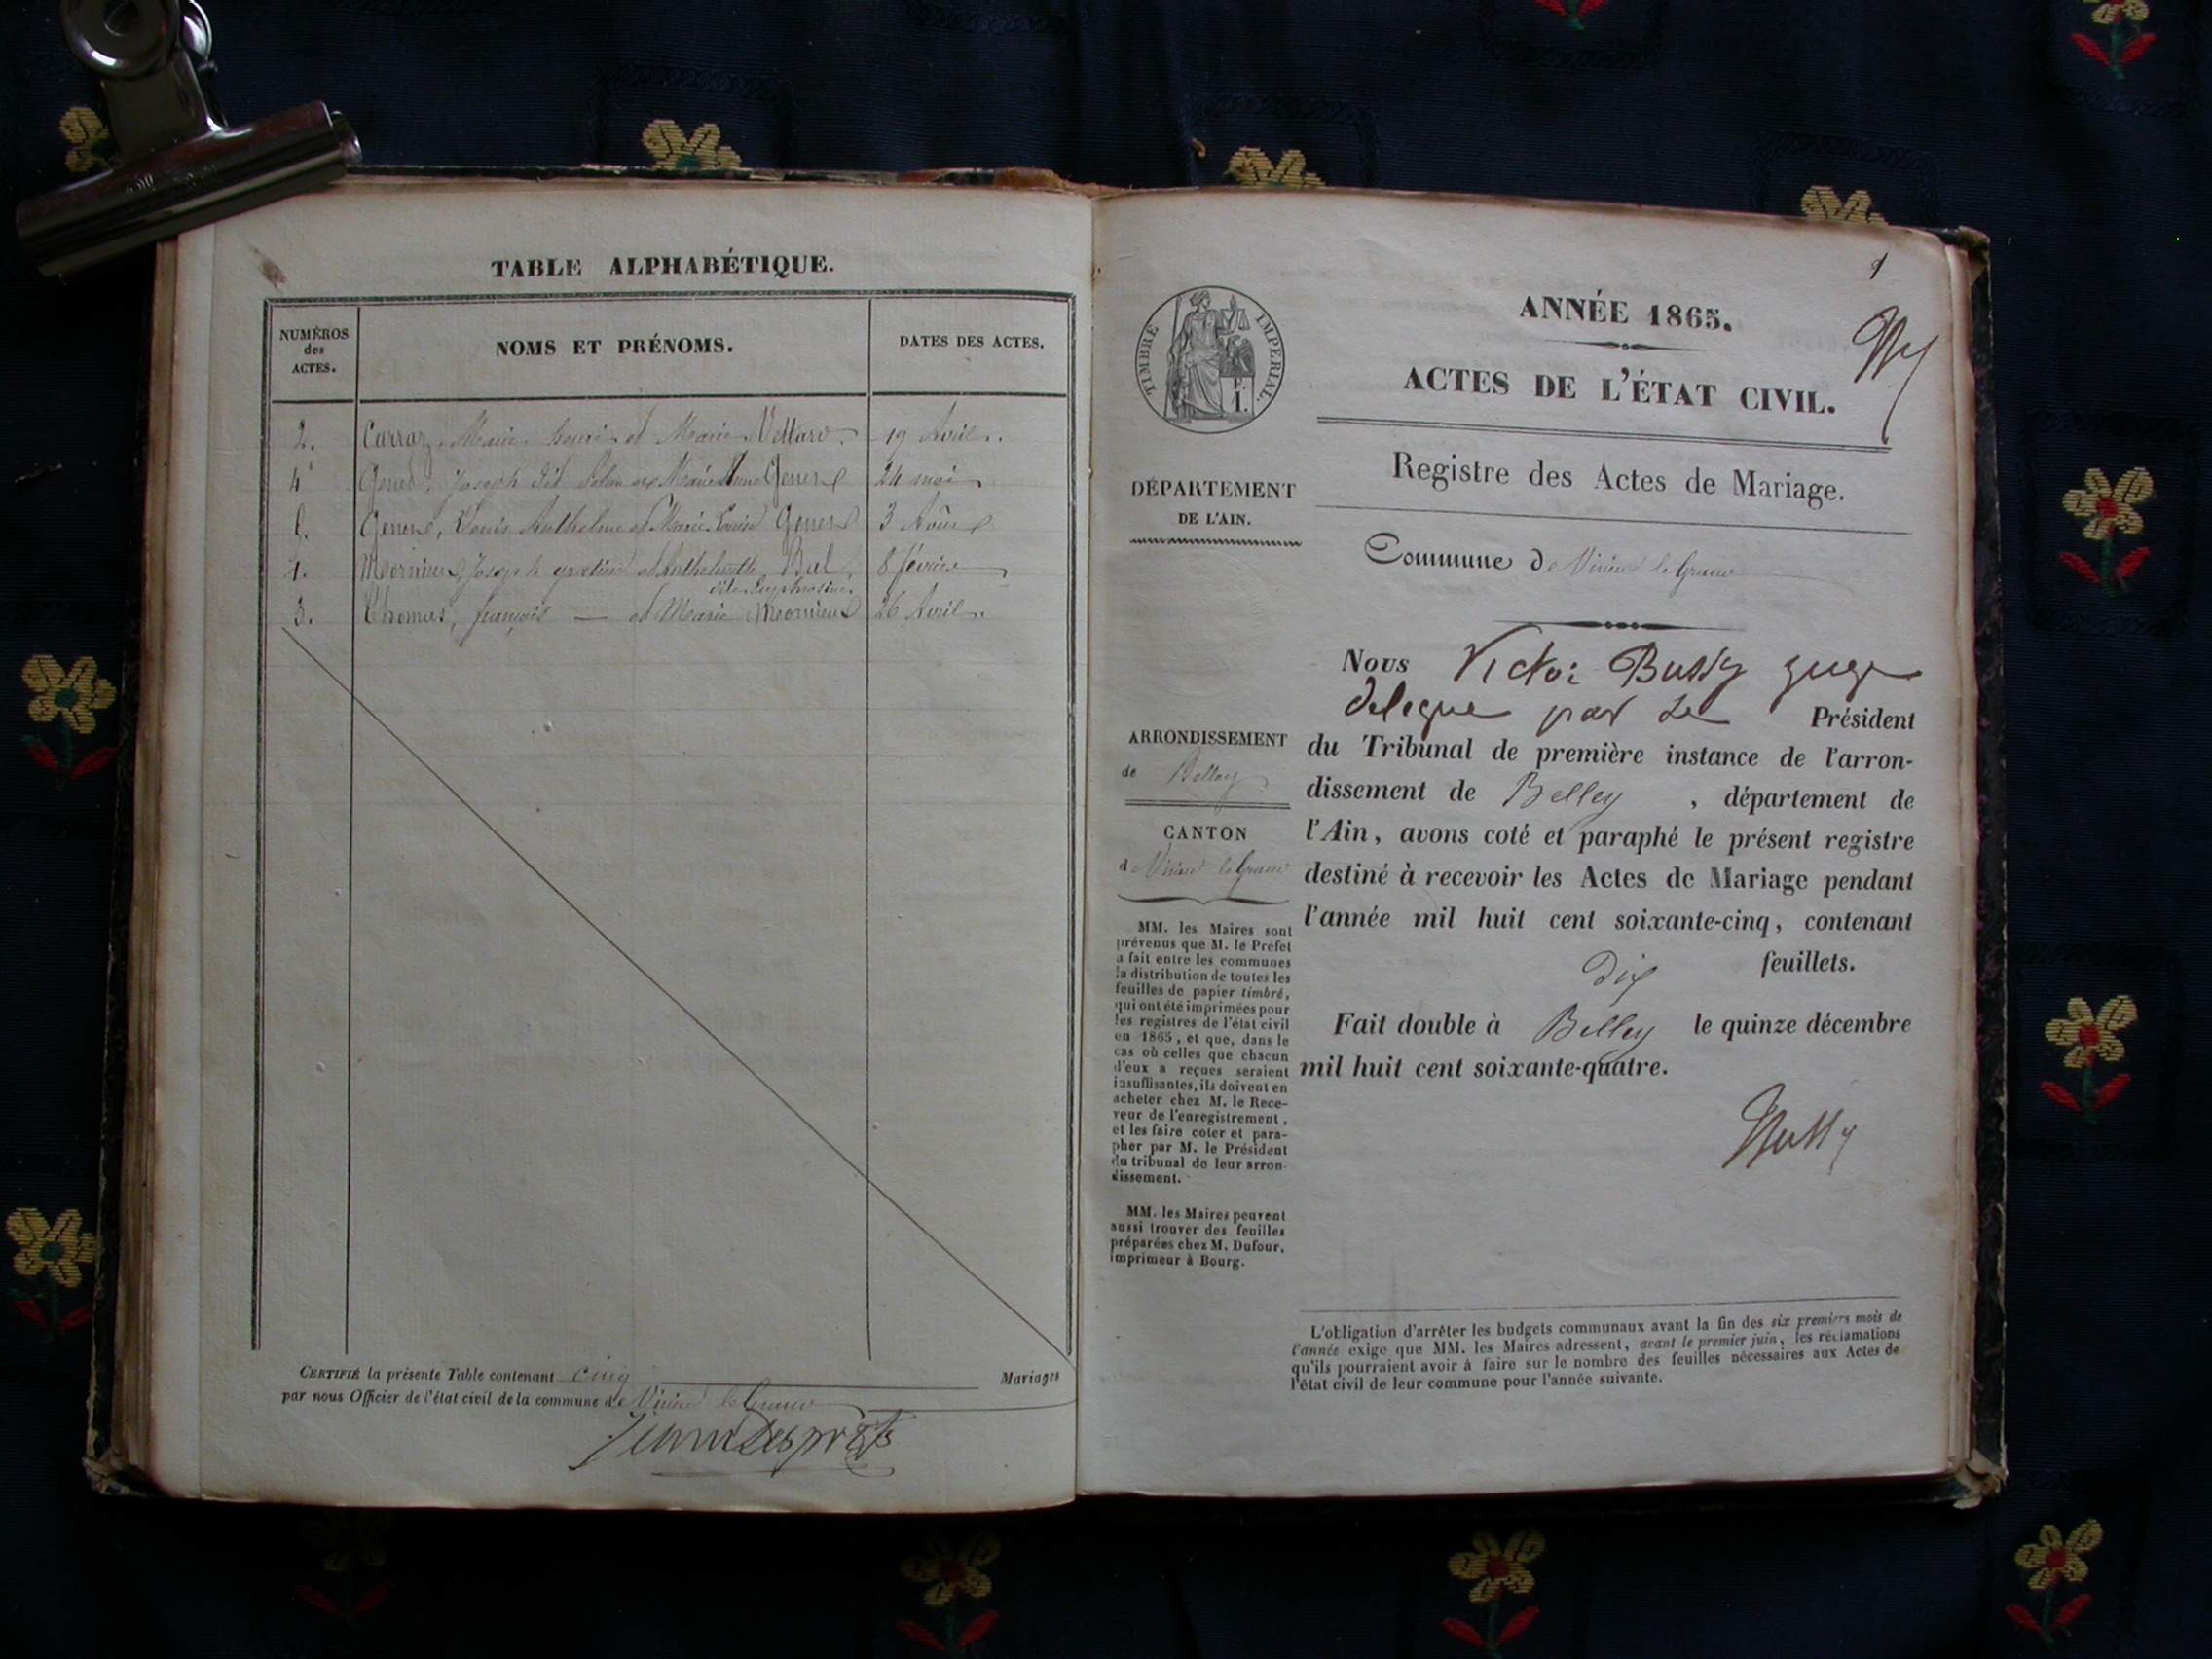 TABLE ALPHABÉTIQUE.
NUMÉROS
des
ACTES.
NOMS ET PRÉNOMS.
DATES DES ACTES.
2. Carraz, Marie henri et Marie Vettard. 19 Avril.
4 Joseph dit et Marie 24 mai
Louis Anthelme et Marie Louise 3 Août
1. Joseph et Bal, 8 février
dite Euphrosine.
3. Thomas, françois — et Marie 26 Avril.
CERTIFIÉ la présente Table contenant cinq Mariages
par nous Officier de l'état civil de la commune de Virieu le Grand
1
ANNÉE 1865.
ACTES DE L'ÉTAT CIVIL.
TIMBRE IMPÉRIAL.
Registre des Actes de Mariage.
DÉPARTEMENT
DE L'AIN.
Commune de Virieu le Grand
Nous Victor Bussy juge
délégué par Le Président
du Tribunal de première instance de l'arron-
dissement de Belley, département de
l'Ain, avons coté et paraphé le présent registre
destiné à recevoir les Actes de Mariage pendant
l'année mil huit cent soixante-cinq, contenant
dix feuillets.
Fait double à Belley le quinze décembre
mil huit cent soixante-quatre.
Bussy
ARRONDISSEMENT
de Belley
CANTON
de Virieu le Grand
MM. les Maires sont
prévenus que M. le Préfet
a fait entre les communes
la distribution de toutes les
feuilles de papier timbré,
qui ont été imprimées pour
les registres de l'état civil
en 1865, et que, dans le
cas où celles que chacun
d'eux a reçues seraient
insuffisantes, ils doivent en
acheter chez M. le Rece-
veur de l'enregistrement,
et les faire coter et para-
pher par M. le Président
du tribunal de leur arron-
dissement.
MM. les Maires peuvent
aussi trouver des feuilles
préparées chez M. Dufour,
imprimeur à Bourg.
L'obligation d'arrêter les budgets communaux avant la fin des six premiers mois de
l'année exige que MM. les Maires adressent, avant le premier juin, les réclamations
qu'ils pourraient avoir à faire sur le nombre des feuilles nécessaires aux Actes de
l'état civil de leur commune pour l'année suivante.